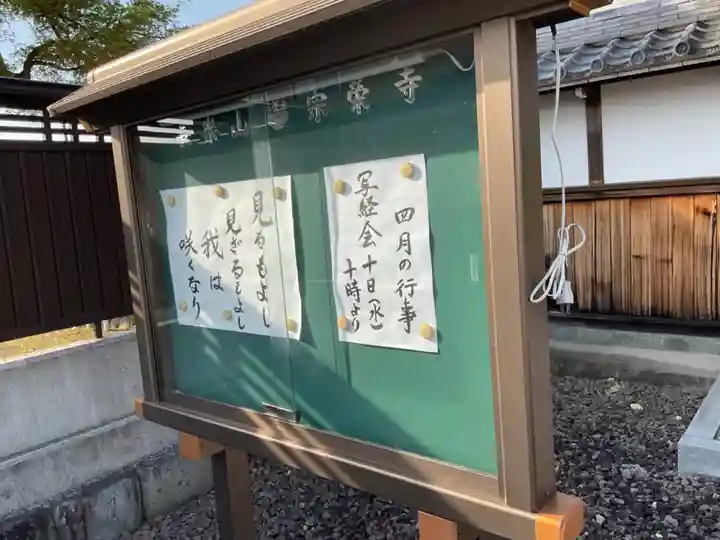 山 宗榮寺
四月の行事
写経会 十日(水)
十時より
見るもよし
見ざるもよし
我は
咲くなり